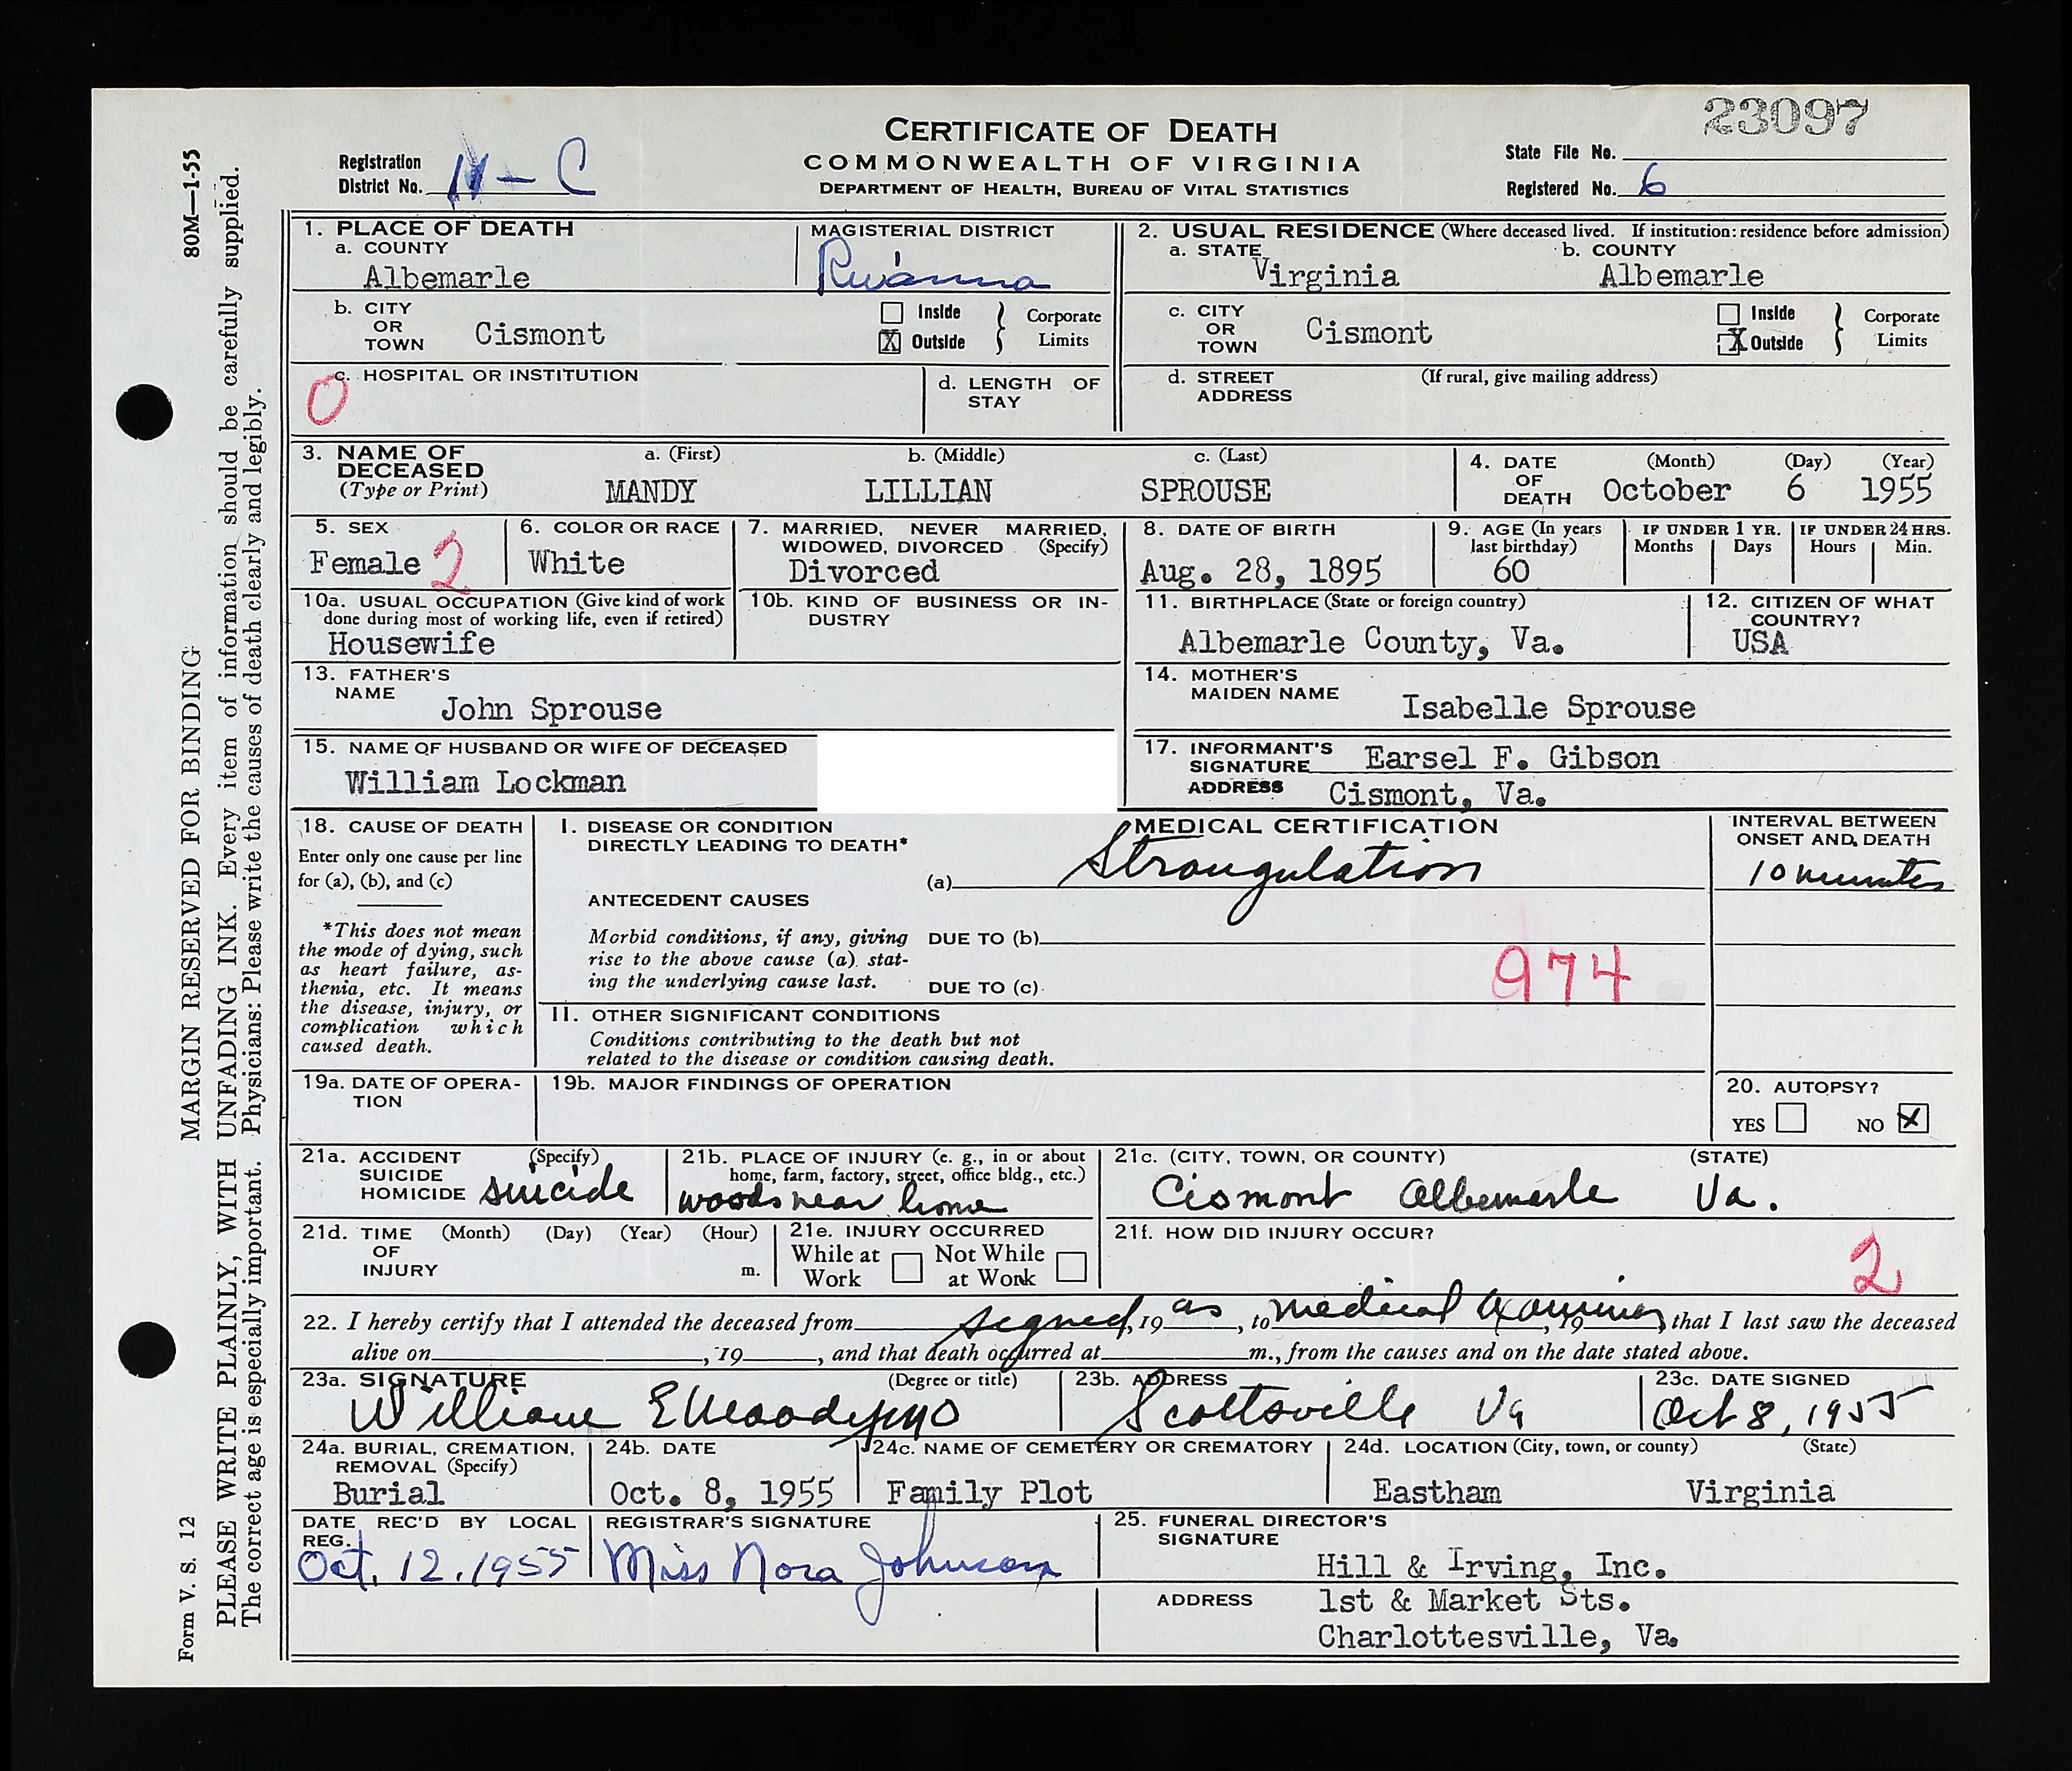 23097
CERTIFICATE OF DEATH
COMMONWEALTH OF VIRGINIA
DEPARTMENT OF HEALTH, BUREAU OF VITAL STATISTICS
Registration District No. - C
State File No.
Registered No. 6
80M—1-55
MARGIN RESERVED FOR BINDING
PLEASE WRITE PLAINLY, WITH UNFADING INK. Every item of information should be carefully supplied.
The correct age is especially important. Physicians: Please write the causes of death clearly and legibly.
Form V. S. 12
1. PLACE OF DEATH
a. COUNTY
Albemarle
MAGISTERIAL DISTRICT
Rivanna
b. CITY OR TOWN Cismont
Inside
X Outside
Corporate Limits
c. HOSPITAL OR INSTITUTION
0
d. LENGTH OF STAY
2. USUAL RESIDENCE (Where deceased lived. If institution: residence before admission)
a. STATE Virginia
b. COUNTY Albemarle
c. CITY OR TOWN Cismont
Inside
X Outside
Corporate Limits
d. STREET ADDRESS (If rural, give mailing address)
3. NAME OF DECEASED (Type or Print)
a. (First) MANDY
b. (Middle) LILLIAN
c. (Last) SPROUSE
4. DATE OF DEATH (Month) (Day) (Year)
October 6 1955
5. SEX
Female 2
6. COLOR OR RACE
White
7. MARRIED, NEVER MARRIED, WIDOWED, DIVORCED (Specify)
Divorced
8. DATE OF BIRTH
Aug. 28, 1895
9. AGE (In years last birthday)
60
IF UNDER 1 YR. Months Days
IF UNDER 24 HRS. Hours Min.
10a. USUAL OCCUPATION (Give kind of work done during most of working life, even if retired)
Housewife
10b. KIND OF BUSINESS OR INDUSTRY
11. BIRTHPLACE (State or foreign country)
Albemarle County, Va.
12. CITIZEN OF WHAT COUNTRY?
USA
13. FATHER'S NAME
John Sprouse
14. MOTHER'S MAIDEN NAME
Isabelle Sprouse
15. NAME OF HUSBAND OR WIFE OF DECEASED
William Lockman
17. INFORMANT'S SIGNATURE Earsel F. Gibson
ADDRESS Cismont, Va.
18. CAUSE OF DEATH
Enter only one cause per line for (a), (b), and (c)
*This does not mean the mode of dying, such as heart failure, asthenia, etc. It means the disease, injury, or complication which caused death.
MEDICAL CERTIFICATION
I. DISEASE OR CONDITION DIRECTLY LEADING TO DEATH*
(a) Strangulation
ANTECEDENT CAUSES
Morbid conditions, if any, giving rise to the above cause (a) stating the underlying cause last.
DUE TO (b)
DUE TO (c)
974
II. OTHER SIGNIFICANT CONDITIONS
Conditions contributing to the death but not related to the disease or condition causing death.
INTERVAL BETWEEN ONSET AND DEATH
10 minutes
19a. DATE OF OPERATION
19b. MAJOR FINDINGS OF OPERATION
20. AUTOPSY?
YES NO X
21a. ACCIDENT SUICIDE HOMICIDE (Specify)
suicide
21b. PLACE OF INJURY (e. g., in or about home, farm, factory, street, office bldg., etc.)
woods near home
21c. (CITY, TOWN, OR COUNTY) (STATE)
Cismont Albemarle Va.
21d. TIME OF INJURY (Month) (Day) (Year) (Hour) m.
21e. INJURY OCCURRED
While at Work Not While at Work
21f. HOW DID INJURY OCCUR?
2
22. I hereby certify that I attended the deceased from signed, 19 as, to medical Examiner, 19, that I last saw the deceased
alive on, 19, and that death occurred at m., from the causes and on the date stated above.
23a. SIGNATURE (Degree or title)
William E Moody MD
23b. ADDRESS
Scottsville Va
23c. DATE SIGNED
Oct 8, 1955
24a. BURIAL, CREMATION, REMOVAL (Specify)
Burial
24b. DATE
Oct. 8, 1955
24c. NAME OF CEMETERY OR CREMATORY
Family Plot
24d. LOCATION (City, town, or county) (State)
Eastham Virginia
DATE REC'D BY LOCAL REG.
Oct. 12, 1955
REGISTRAR'S SIGNATURE
Miss Nora Johnson
25. FUNERAL DIRECTOR'S SIGNATURE
Hill & Irving, Inc.
ADDRESS 1st & Market Sts.
Charlottesville, Va.